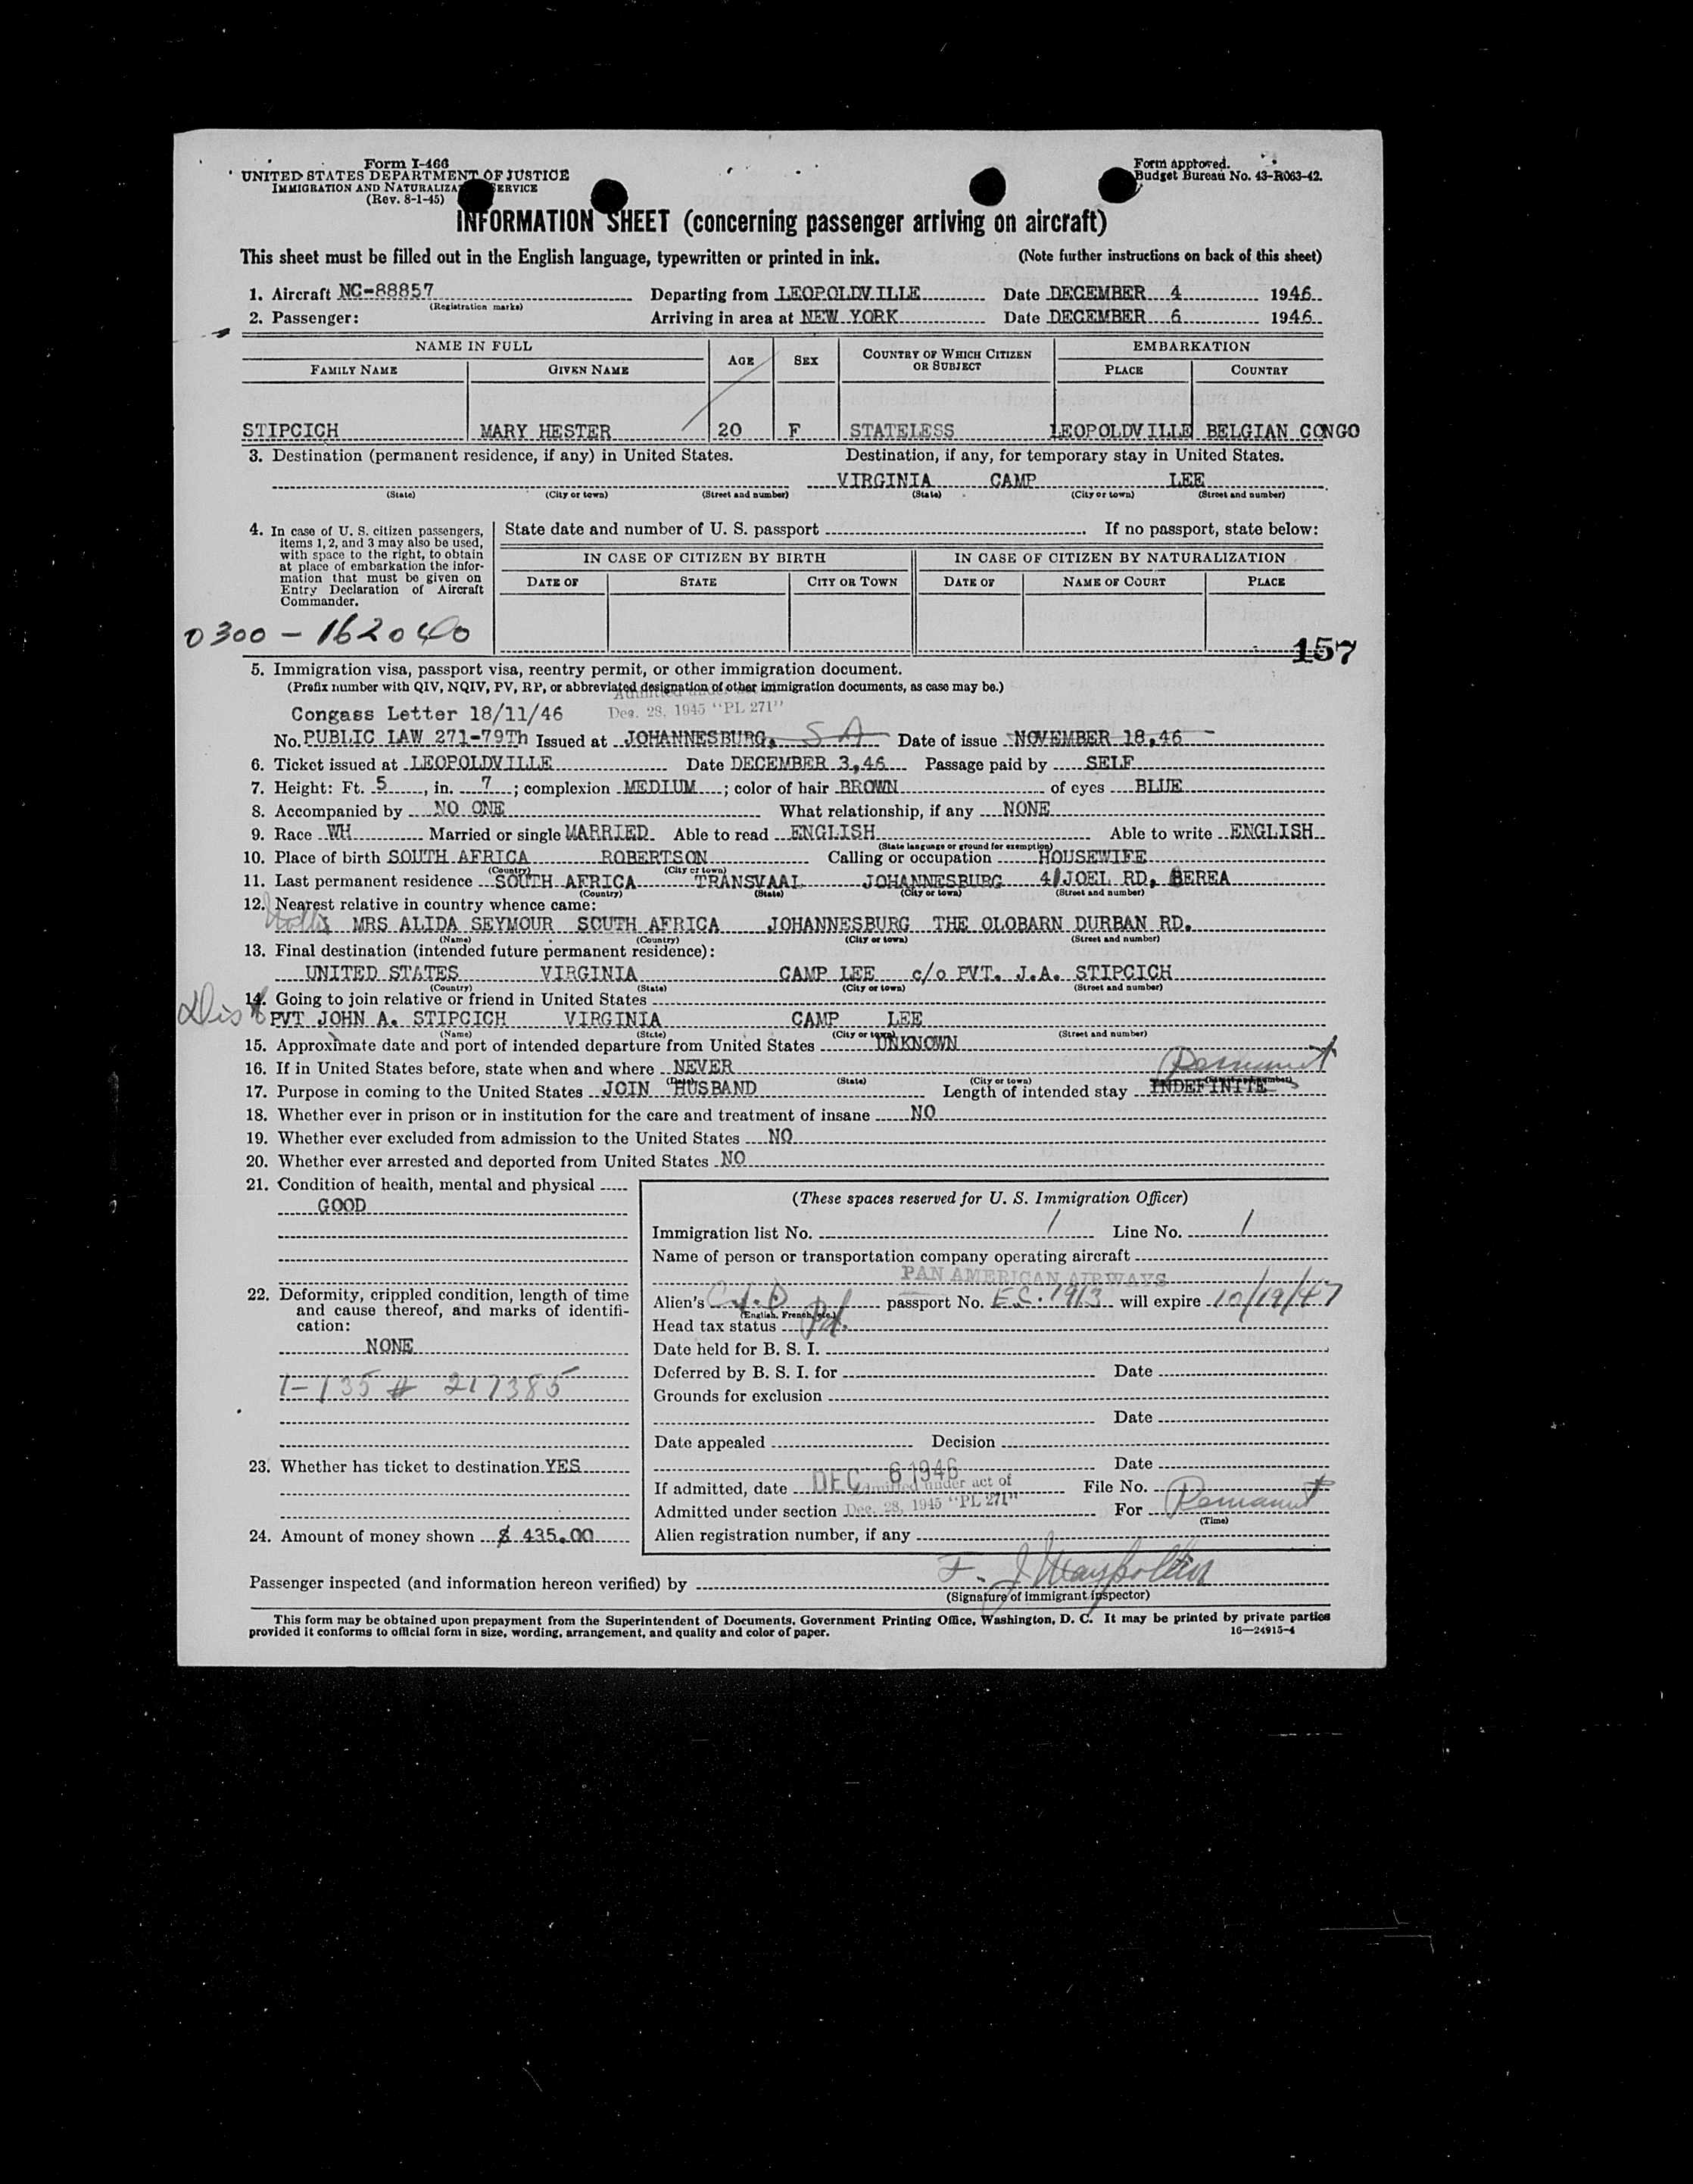 Form I-466
UNITED STATES DEPARTMENT OF JUSTICE
IMMIGRATION AND NATURALIZA ERVICE
(Rev. 8-1-45)
Form approved.
Budget Bureau No. 43-R063-42.
INFORMATION SHEET (concerning passenger arriving on aircraft)
This sheet must be filled out in the English language, typewritten or printed in ink. (Note further instructions on back of this sheet)
1. Aircraft NC-88857 Departing from LEOPOLDVILLE Date DECEMBER 4 1946
(Registration marks)
2. Passenger: Arriving in area at NEW YORK Date DECEMBER 6 1946
NAME IN FULL AGE SEX COUNTRY OF WHICH CITIZEN OR SUBJECT EMBARKATION
FAMILY NAME GIVEN NAME PLACE COUNTRY
STIPCICH MARY HESTER 20 F STATELESS LEOPOLDVILLE BELGIAN CONGO
3. Destination (permanent residence, if any) in United States. Destination, if any, for temporary stay in United States.
VIRGINIA CAMP LEE
(State) (City or town) (Street and number) (State) (City or town) (Street and number)
4. In case of U. S. citizen passengers,
items 1, 2, and 3 may also be used,
with space to the right, to obtain
at place of embarkation the infor-
mation that must be given on
Entry Declaration of Aircraft
Commander.
State date and number of U. S. passport If no passport, state below:
IN CASE OF CITIZEN BY BIRTH IN CASE OF CITIZEN BY NATURALIZATION
DATE OF STATE CITY OR TOWN DATE OF NAME OF COURT PLACE
0300-162040
157
5. Immigration visa, passport visa, reentry permit, or other immigration document.
(Prefix number with QIV, NQIV, PV, RP, or abbreviated designation of other immigration documents, as case may be.)
Admitted under act of
Congass Letter 18/11/46 Dec. 28, 1945 "PL 271"
No. PUBLIC LAW 271-79Th Issued at JOHANNESBURG, S A Date of issue NOVEMBER 18,46
6. Ticket issued at LEOPOLDVILLE Date DECEMBER 3,46 Passage paid by SELF
7. Height: Ft. 5, in. 7; complexion MEDIUM; color of hair BROWN of eyes BLUE
8. Accompanied by NO ONE What relationship, if any NONE
9. Race WH Married or single MARRIED Able to read ENGLISH Able to write ENGLISH
(State language or ground for exemption)
10. Place of birth SOUTH AFRICA ROBERTSON Calling or occupation HOUSEWIFE
(Country) (City or town)
11. Last permanent residence SOUTH AFRICA TRANSVAAL JOHANNESBURG 41 JOEL RD, BEREA
(Country) (State) (City or town) (Street and number)
12. Nearest relative in country whence came:
MRS ALIDA SEYMOUR SOUTH AFRICA JOHANNESBURG THE OLOBARN DURBAN RD.
(Name) (Country) (City or town) (Street and number)
13. Final destination (intended future permanent residence):
UNITED STATES VIRGINIA CAMP LEE c/o PVT. J.A. STIPCICH
(Country) (State) (City or town) (Street and number)
14. Going to join relative or friend in United States
PVT JOHN A. STIPCICH VIRGINIA CAMP LEE
(Name) (State) (City or town) (Street and number)
15. Approximate date and port of intended departure from United States UNKNOWN
16. If in United States before, state when and where NEVER
(Date) (State) (City or town) (Street and number)
17. Purpose in coming to the United States JOIN HUSBAND Length of intended stay INDEFINITE
18. Whether ever in prison or in institution for the care and treatment of insane NO
19. Whether ever excluded from admission to the United States NO
20. Whether ever arrested and deported from United States NO
21. Condition of health, mental and physical
GOOD
22. Deformity, crippled condition, length of time
and cause thereof, and marks of identifi-
cation:
NONE
I-135 # 217385
23. Whether has ticket to destination YES
24. Amount of money shown $ 435.00
(These spaces reserved for U. S. Immigration Officer)
Immigration list No. 1 Line No. 1
Name of person or transportation company operating aircraft
PAN AMERICAN AIRWAYS
Alien's passport No. E.C. 1913 will expire 10/19/47
(English, French, etc.)
Head tax status Pd.
Date held for B. S. I.
Deferred by B. S. I. for Date
Grounds for exclusion
Date
Date appealed Decision
Date
If admitted, date DEC 6 1946 File No.
Admitted under act of
Admitted under section Dec. 28, 1945 "PL 271" For
(Time)
Alien registration number, if any
Passenger inspected (and information hereon verified) by
(Signature of immigrant inspector)
This form may be obtained upon prepayment from the Superintendent of Documents, Government Printing Office, Washington, D. C. It may be printed by private parties
provided it conforms to official form in size, wording, arrangement, and quality and color of paper. 16—24915-4